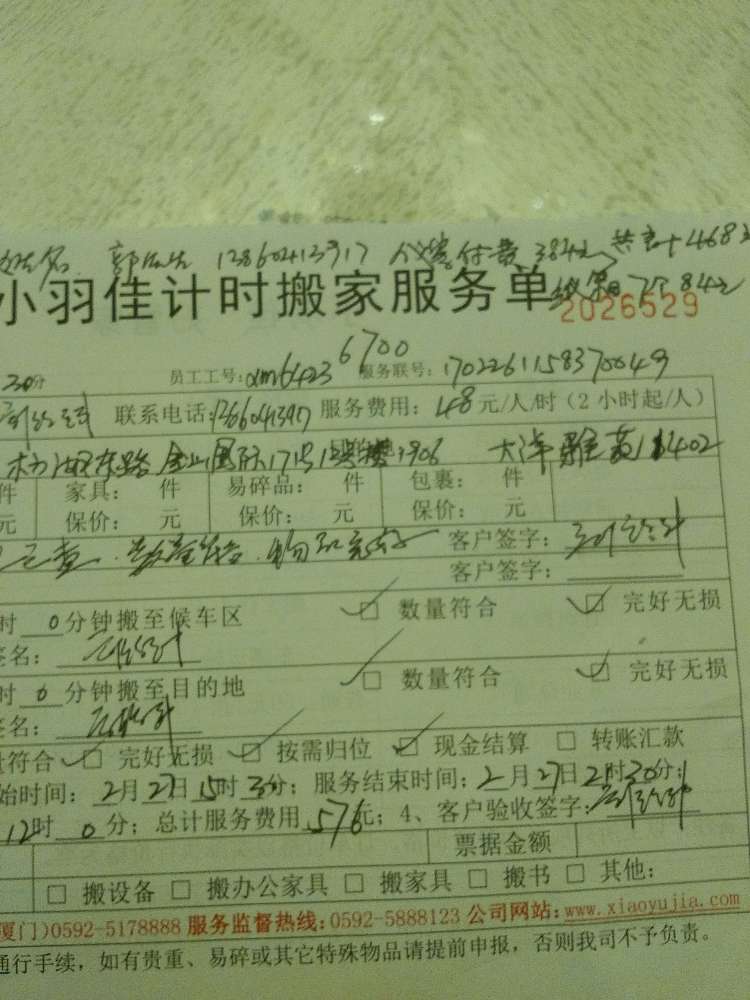 姓名 郭先生 13860413917 仪器付费384元 共计468元
小羽佳计时搬家服务单 84元
2026529
30分 员工工号:xm6423 6700 服务联号:1702261158370049
联系电话: 服务费用:48元/人/时(2小时起/人)
金山国际171号 1906 大洋 1402
件 家具: 件 易碎品: 件 包裹: 件
元 保价: 元 保价: 元 保价: 元
数量 物品完好 客户签字:
客户签字:
时 0 分钟搬至候车区 ☑ 数量符合 ☑ 完好无损
签名:
时 0 分钟搬至目的地 ☑ 数量符合 ☑ 完好无损
签名:
量符合 ☑ 完好无损 ☑ 按需归位 ☑ 现金结算 □ 转账汇款
始时间: 2月27日15时30分; 服务结束时间: 2月27日21时30分;
12时 0 分; 总计服务费用 576 元; 4、客户验收签字:
票据金额
□ 搬设备 □ 搬办公家具 □ 搬家具 □ 搬书 □ 其他:
厦门)0592-5178888 服务监督热线:0592-5888123 公司网站:www.xiaoyujia.com
通行手续,如有贵重、易碎或其它特殊物品请提前申报,否则我司不予负责。